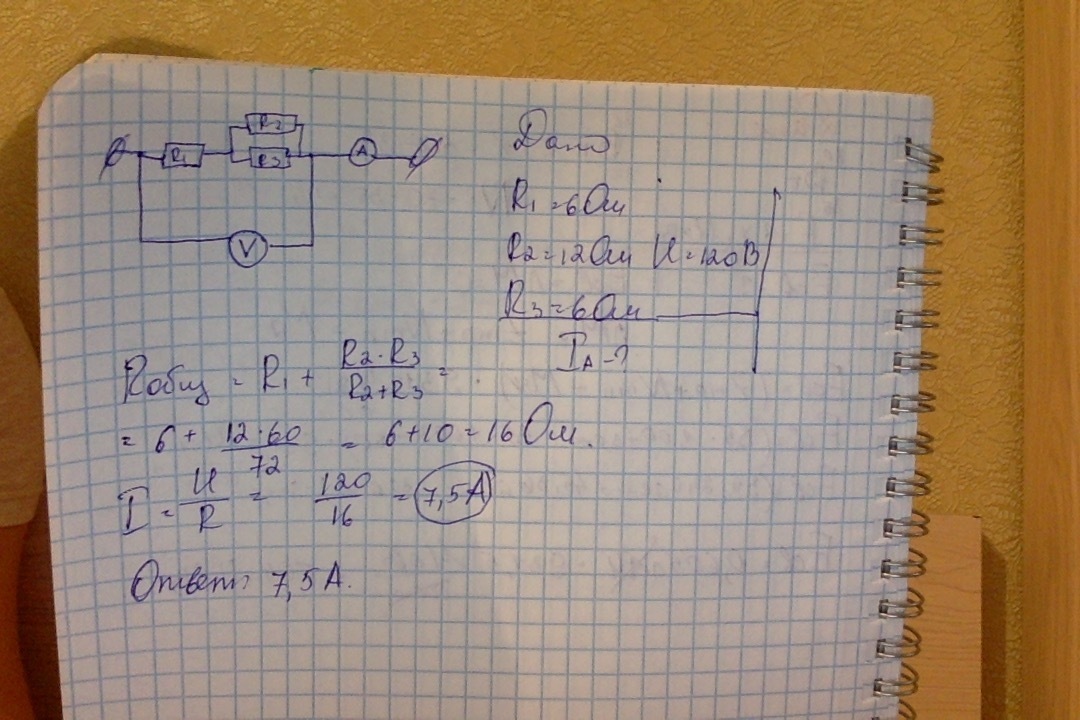 R2
R1 R3 A
V
Дано
R1 = 6 Ом
R2 = 12 Ом U = 120 В
R3 = 6 Ом
IА - ?
Rобщ = R1 + R2·R3 / R2+R3 =
= 6 + 12·60 / 72 = 6+10 = 16 Ом.
I = U / R = 120 / 16 = 7,5 А
Ответ: 7,5 А.